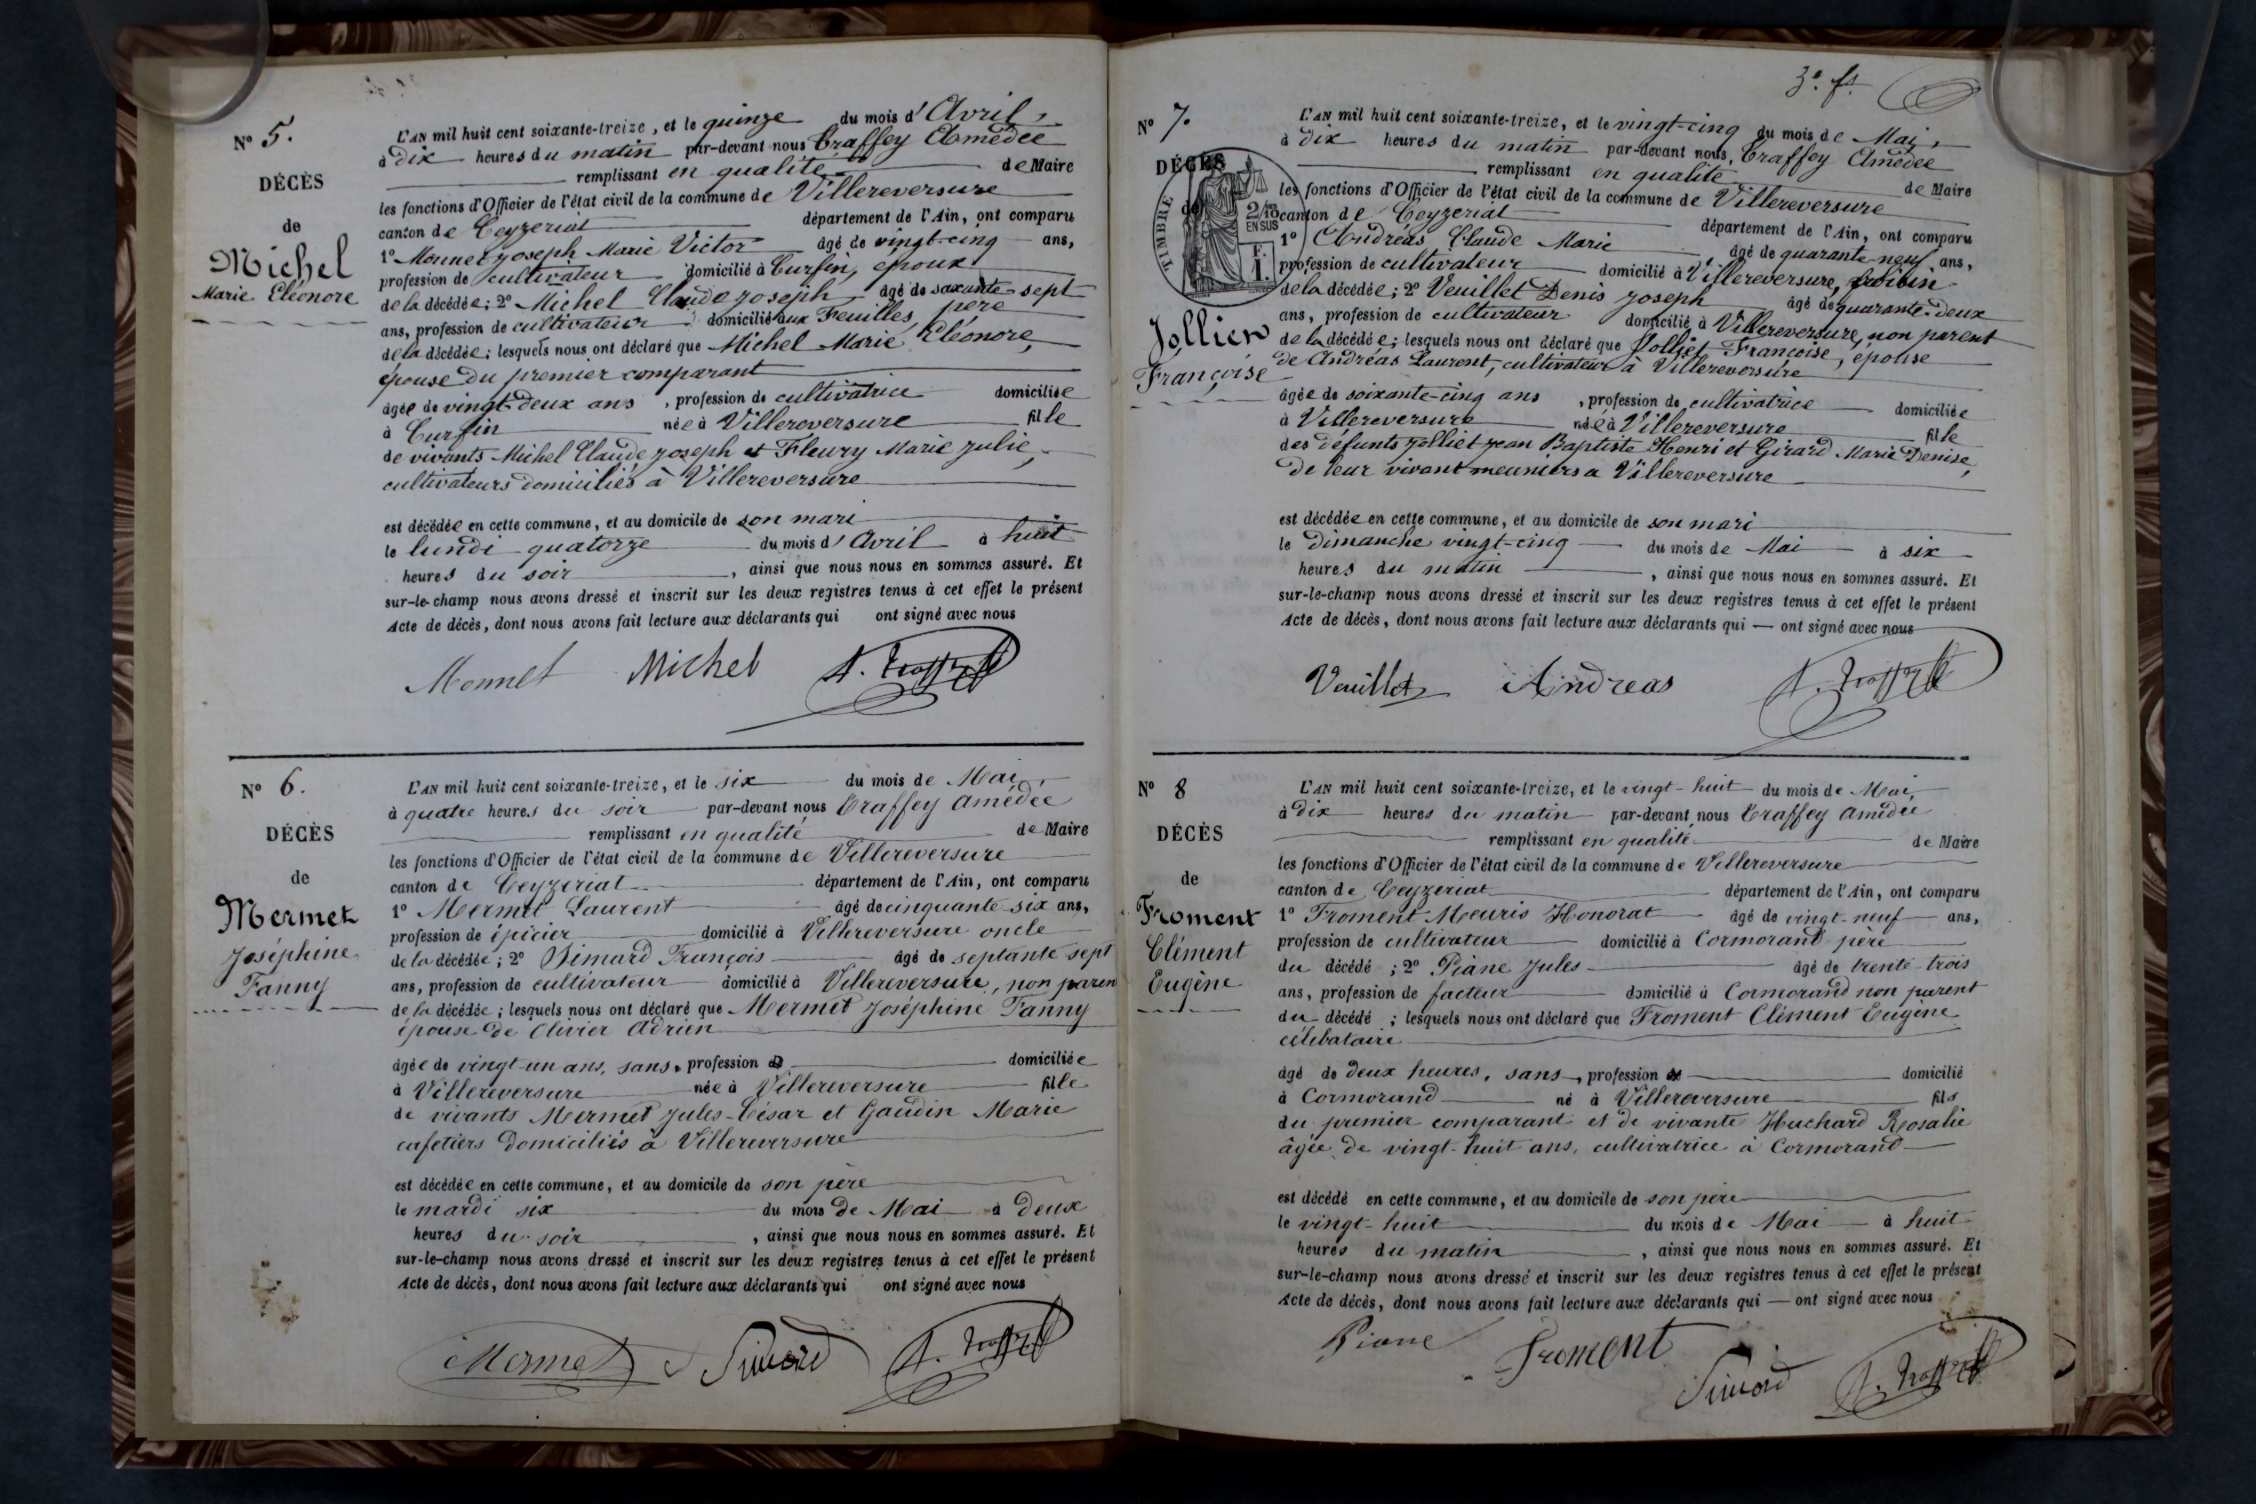 Nº 5.
DÉCÈS
de
Michel
Marie Eléonore
L'AN mil huit cent soixante-treize, et le quinze du mois d'Avril,
à dix heures du matin par-devant nous Traffey Amédée
remplissant en qualité de Maire
les fonctions d'Officier de l'état civil de la commune de Villereversure
canton de Ceyzeriat département de l'Ain, ont comparu
1º Monnet Joseph Marie Victor âgé de vingt-cinq ans,
profession de cultivateur domicilié à Curfin, époux
de la décédée; 2º Michel Claude Joseph âgé de soixante sept
ans, profession de cultivateur domicilié aux Feuilles, père
de la décédée; lesquels nous ont déclaré que Michel Marie Eléonore,
épouse du premier comparant
âgée de vingt-deux ans, profession de cultivatrice domiciliée
à Curfin née à Villereversure fille
de vivants Michel Claude Joseph et Fleury Marie Julie,
cultivateurs domiciliés à Villereversure
est décédée en cette commune, et au domicile de son mari
le lundi quatorze du mois d'Avril à huit
heures du soir, ainsi que nous nous en sommes assuré. Et
sur-le-champ nous avons dressé et inscrit sur les deux registres tenus à cet effet le présent
Acte de décès, dont nous avons fait lecture aux déclarants qui ont signé avec nous
Monnet Michel A. Traffey
Nº 6.
DÉCÈS
de
Mermet
Joséphine
Fanny
L'AN mil huit cent soixante-treize, et le six du mois de Mai,
à quatre heures du soir par-devant nous Traffey Amédée
remplissant en qualité de Maire
les fonctions d'Officier de l'état civil de la commune de Villereversure
canton de Ceyzeriat département de l'Ain, ont comparu
1º Mermet Laurent âgé de cinquante-six ans,
profession de épicier domicilié à Villereversure oncle
de la décédée; 2º Simard François âgé de septante sept
ans, profession de cultivateur domicilié à Villereversure, non paren
de la décédée; lesquels nous ont déclaré que Mermet Joséphine Fanny
épouse de Olivier Adrien
âgée de vingt-un ans, sans profession domiciliée
à Villereversure née à Villereversure fille
de vivants Mermet Jules-César et Gaudin Marie
cafetiers domiciliés à Villereversure
est décédée en cette commune, et au domicile de son père
le mardi six du mois de Mai à deux
heures du soir, ainsi que nous nous en sommes assuré. Et
sur-le-champ nous avons dressé et inscrit sur les deux registres tenus à cet effet le présent
Acte de décès, dont nous avons fait lecture aux déclarants qui ont signé avec nous
Mermet Simard A. Traffey
3e. f.
Nº 7.
DÉCÈS
de
TIMBRE
2/10
EN SUS
F.
1.
Jolliet
Françoise
L'AN mil huit cent soixante-treize, et le vingt-cinq du mois de Mai,
à dix heures du matin par-devant nous, Traffey Amédée
remplissant en qualité de Maire
les fonctions d'Officier de l'état civil de la commune de Villereversure
canton de Ceyzeriat département de l'Ain, ont comparu
1º Andréas Claude Marie âgé de quarante-neuf ans,
profession de cultivateur domicilié à Villereversure, voisin
de la décédée; 2º Veuillet Denis Joseph âgé de quarante-deux
ans, profession de cultivateur domicilié à Villereversure, non parent
de la décédée; lesquels nous ont déclaré que Jolliet Françoise, épouse
de Andréas Laurent, cultivateur à Villereversure
âgée de soixante-cinq ans, profession de cultivatrice domiciliée
à Villereversure née à Villereversure fille
des défunts Jolliet Jean Baptiste Henri et Girard Marie Denise,
de leur vivant meuniers à Villereversure
est décédée en cette commune, et au domicile de son mari
le dimanche vingt-cinq du mois de Mai à six
heures du matin, ainsi que nous nous en sommes assuré. Et
sur-le-champ nous avons dressé et inscrit sur les deux registres tenus à cet effet le présent
Acte de décès, dont nous avons fait lecture aux déclarants qui ont signé avec nous
Veuillet Andreas A. Traffey
Nº 8
DÉCÈS
de
Froment
Clément
Eugène
L'AN mil huit cent soixante-treize, et le vingt-huit du mois de Mai,
à dix heures du matin par-devant nous Traffey Amédée
remplissant en qualité de Maire
les fonctions d'Officier de l'état civil de la commune de Villereversure
canton de Ceyzeriat département de l'Ain, ont comparu
1º Froment Meuris Honorat âgé de vingt-neuf ans,
profession de cultivateur domicilié à Cormorand père
du décédé; 2º Piane Jules âgé de trente-trois
ans, profession de facteur domicilié à Cormorand non parent
du décédé; lesquels nous ont déclaré que Froment Clément Eugène
célibataire
âgé de deux heures, sans, profession domicilié
à Cormorand né à Villereversure fils
du premier comparant et de vivante Huchard Rosalie
âgée de vingt-huit ans, cultivatrice à Cormorand
est décédé en cette commune, et au domicile de son père
le vingt-huit du mois de Mai à huit
heures du matin, ainsi que nous nous en sommes assuré. Et
sur-le-champ nous avons dressé et inscrit sur les deux registres tenus à cet effet le présent
Acte de décès, dont nous avons fait lecture aux déclarants qui ont signé avec nous
Piane Froment Simard A. Traffey